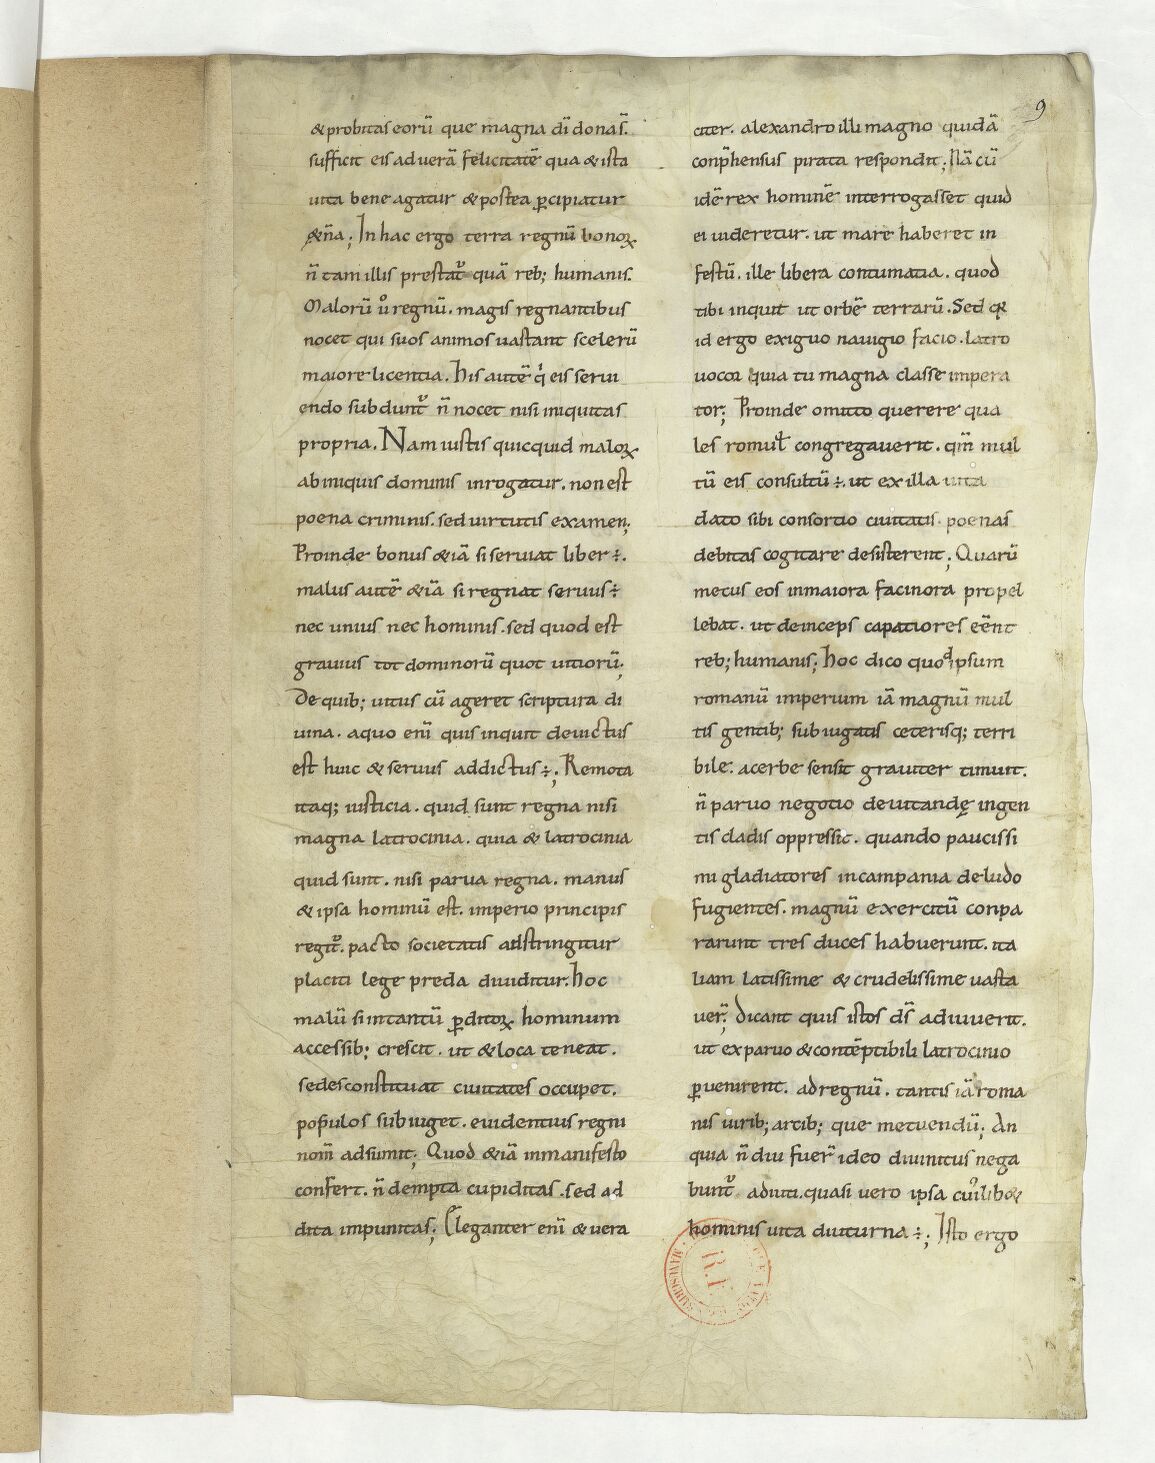 9
& probitas eorū que magna dī donas̄.
sufficit eis ad uerā felicitatē qua & ista
uita bene agatur & postea ꝑcipiatur
&̨n̄a; In hac ergo terra regnū bonoꝝ
n̄ tam illis prestat᷑ quā reb; humanis.
Maloru̅ ů regnū. magis regnantibus
nocet qui suos animos uastant scelerū
maiore licentia. his autē q̇ eis serui
endo subdunt᷑ n̄ nocet nisi iniquitas
propria. Nam iustis quicquid maloꝝ
ab iniquis dominis inrogatur. non est
poena criminis. sed uirtutis examen;
Proinde bonus &iā si seruiat liber ÷.
malus autē &iā si regnat seruus ÷
nec unius nec hominis. sed quod est
grauius tot dominorū quot uitiorū;
De quib; uitus cū ageret scriptura di
uina. a quo enī quis inquit deuictus
est huic & seruus addictus ÷; Remota
itaq; iusticia. quid sunt regna nisi
magna latrocinia. quia & latrocinia
quid sunt. nisi parua regna. manus
& ipsa hominū est. imperio principis
regit᷑. pacto societatis adstringitur
placiti lege preda diuiditur. hoc
malū si in tantū ꝑditoꝝ hominum
accessib; crescit. ut & loca teneat.
sedes constituat ciuitates occupet.
populos subiuget. euidentius regni
nom̄ adsumit; Quod &iā in manifesto
confert. n̄ dempta cupiditas. sed ad
dita impunitas; Eleganter enī & uera
citer. alexandro illi magno quidā
conp̄hensus pirata respondit; Nā cū
idē rex hominē interrogasset quid
ei uideretur. ut mare haberet in
festū. ille libera contumatia. quod
tibi inquit ut orbē terrarū. Sed qꝛ
id ergo exiguo nauigio facio. latro
uocor quia tu magna classe impera
tor; Proinde omitto querere qua
les romul̄ congregauerit. qm̄ mul
tū eis consultū ÷. ut ex illa uita
dato sibi consortio ciuitatis. poenas
debitas cogitare desisterent; Quarū
metus eos in maiora facinora propel
lebat. ut deinceps capatiores eēnt
reb; humanis; hoc dico quod ipsum
romanū imperium iā magnū mul
tis gentib; subiugatis ceterisq; terri
bile. acerbe sensit grauiter timuit.
n̄ paruo negotio deuitandę ingen
tis cladis oppressit. quando paucissi
mi gladiatores in campania de ludo
fugientes. magnū exercitū conpa
rarunt tres duces habuerunt. ita
liam latissime & crudelissime uasta
uer̄. Dicant quis istos ds̄ adiuuerit.
ut ex paruo & contēptibili latrocinio
ꝑuenirent. ad regnū. tantis iā roma
nis uirib; artib; que metuendū; An
quia n̄ diu fuer̄ ideo diuinitus nega
bunt᷑ adiuti. quasi uero ipsa cui᷑lib&
hominis uita diuturna ÷; Isto ergo
R.F.